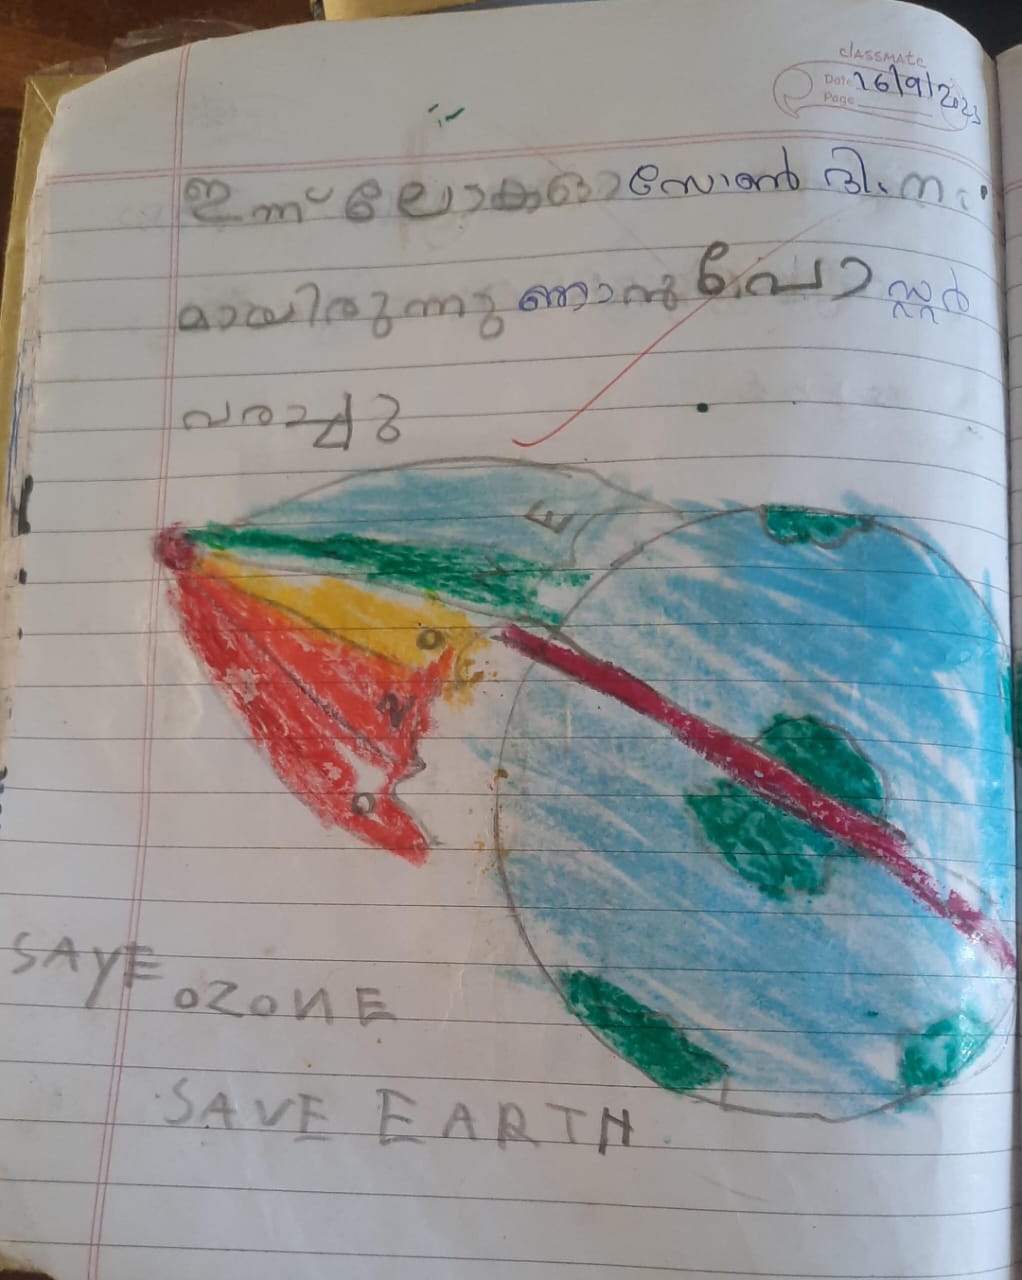 classmate
Date 16/9/2023
Page
ഇന്ന് ലോകഓസോൺ ദിനം
മായിരുന്നു ഞാനുപോസ്റ്റർ
വരച്ചു
E
O
N
O
SAVE OZONE
SAVE EARTH